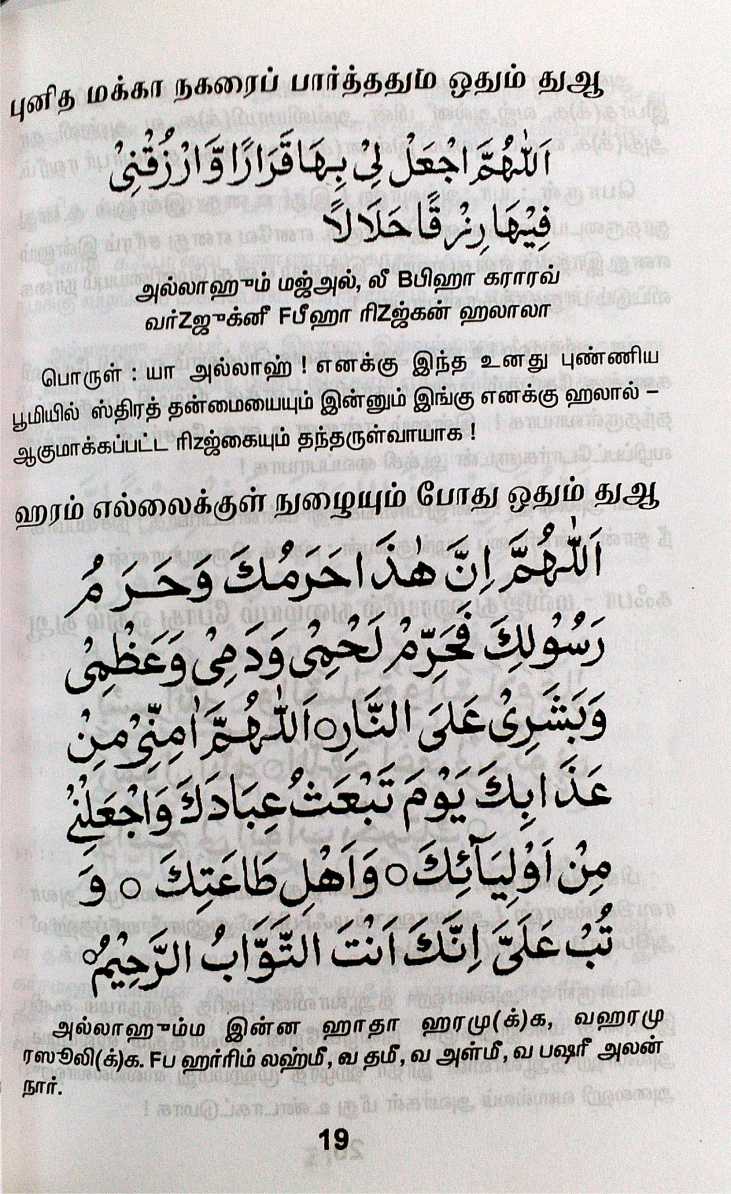 புனித மக்கா நகரைப் பார்த்ததும் ஓதும் துஆ
اَللّٰهُمَّ اجْعَلْ لِيْ بِهَا قَرَارًا وَّارْزُقْنِيْ
فِيْهَا رِزْقًا حَلَالًا
அல்லாஹும் மஜ்அல், லீ Bபிஹா கராரவ்
வர்Zஜுக்னீ Fபீஹா ரிZஜ்கன் ஹலாலா
பொருள் : யா அல்லாஹ் ! எனக்கு இந்த உனது புண்ணிய
பூமியில் ஸ்திரத் தன்மையையும் இன்னும் இங்கு எனக்கு ஹலால் –
ஆகுமாக்கப்பட்ட ரிzஜ்கையும் தந்தருள்வாயாக !
ஹரம் எல்லைக்குள் நுழையும் போது ஓதும் துஆ
اَللّٰهُمَّ اِنَّ هٰذَا حَرَمُكَ وَحَرَمُ
رَسُوْلِكَ فَحَرِّمْ لَحْمِيْ وَدَمِيْ وَعَظْمِيْ
وَبَشَرِيْ عَلَى النَّارِ○اَللّٰهُمَّ اٰمِنِّيْ مِنْ
عَذَابِكَ يَوْمَ تَبْعَثُ عِبَادَكَ وَاجْعَلْنِيْ
مِنْ اَوْلِيَآئِكَ○وَاَهْلِ طَاعَتِكَ ○ وَ
تُبْ عَلَيَّ اِنَّكَ اَنْتَ التَّوَّابُ الرَّحِيْمُ○
அல்லாஹும்ம இன்ன ஹாதா ஹரமு(க்)க, வஹரமு
ரஸூலி(க்)க. Fப ஹர்ரிம் லஹ்மீ, வ தமீ, வ அள்மீ, வ பஷரீ அலன்
நார்.
19